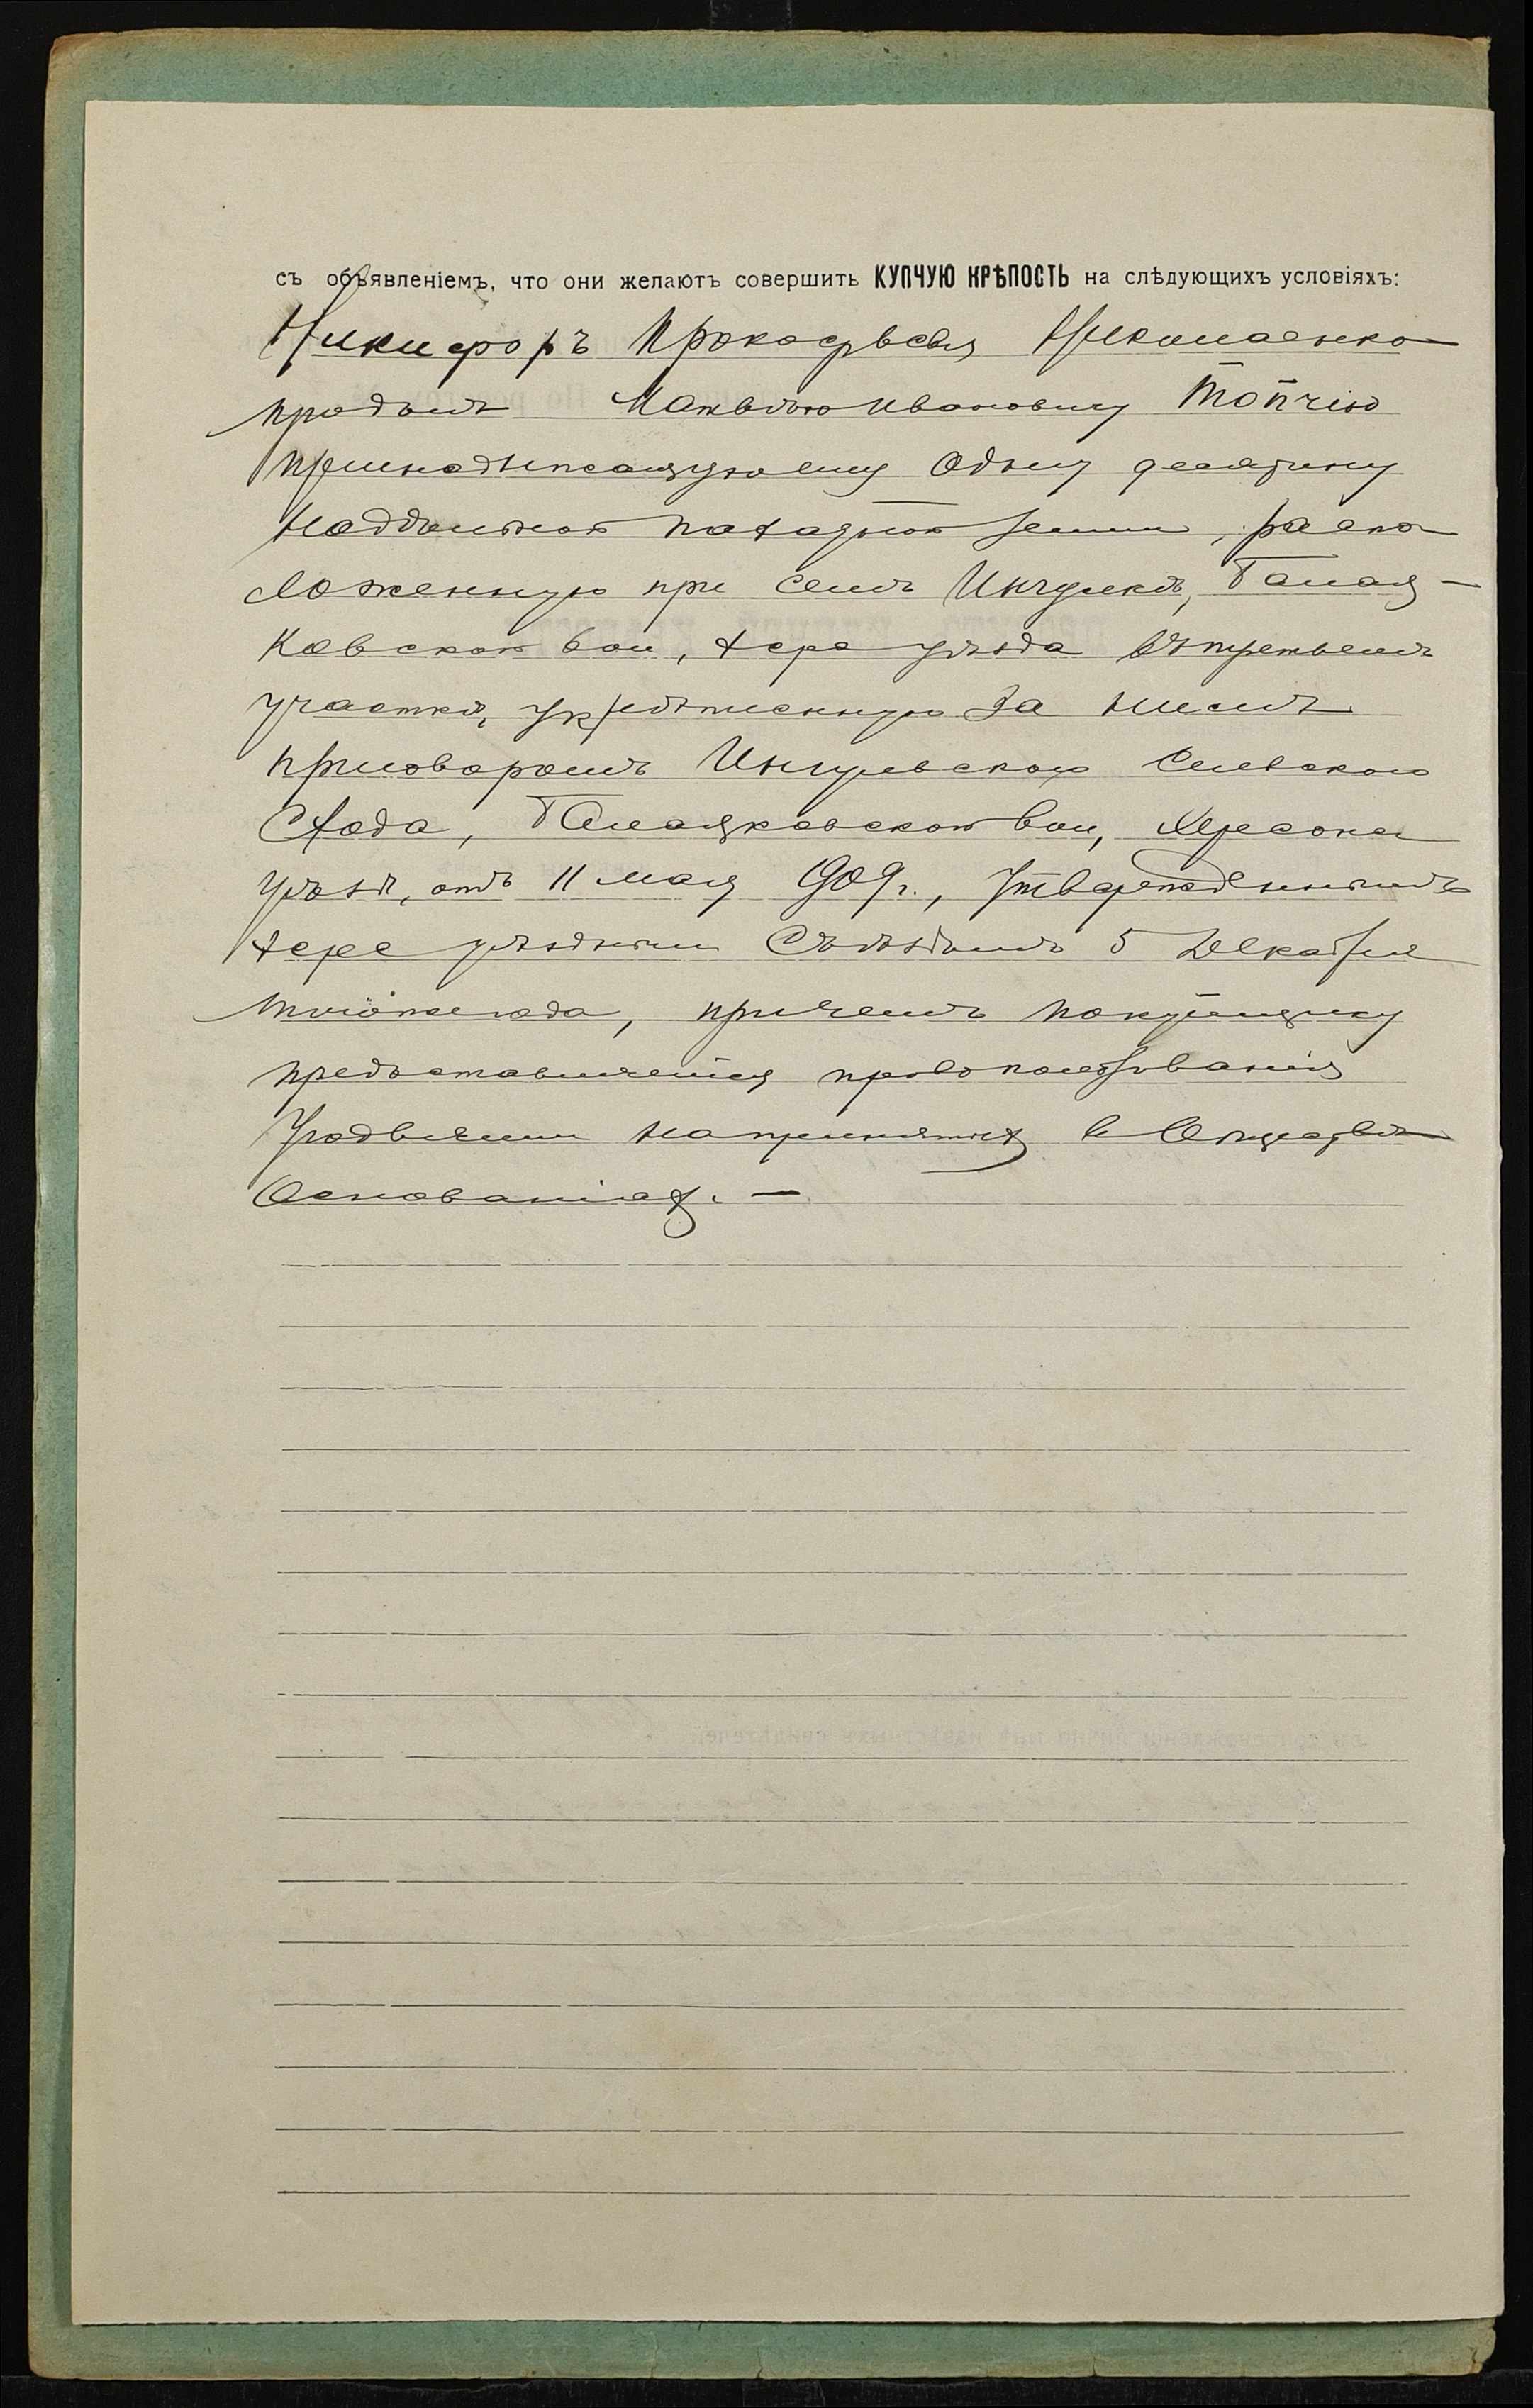 съ объявленіемъ, что они желаютъ совершить КУПЧУЮ КРѢПОСТЬ на слѣдующихъ условіяхъ:
Никифоръ Николаенко
продалъ Матвѣю Ивановичу Топчію
принадлежащую ему одну десятину
надѣльной пахатной земли, распо
ложенную при селѣ Ингулкѣ, Балац-
ковской вол, Херс уѣзда въ третьемъ
участкѣ, укрѣпленную за нимъ
приговоромъ Ингульскаго Сельскаго
Схода, Балацковской вол, Херсонс
уѣзд, отъ 11 мая 909 г., утвержденнымъ
Херс уѣзднымъ Съѣздомъ 5 Декабря
того же года, причемъ покупщику
предоставляется право пользованія
угодьями на принятыхъ въ Обществѣ
Основаніяхъ. —